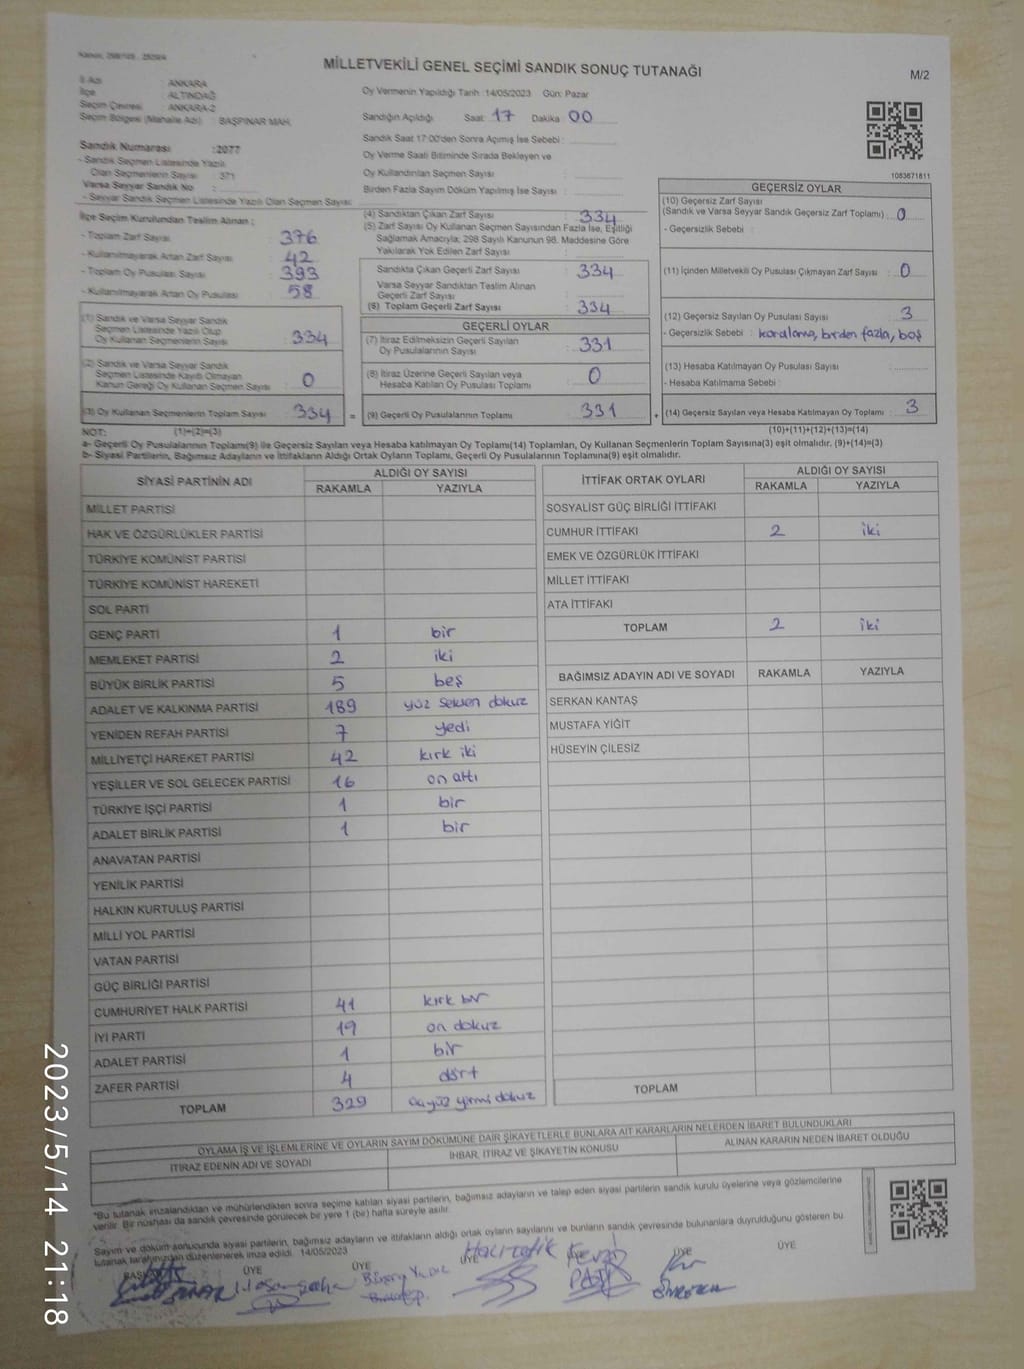 MİLLETVEKİLİ GENEL SEÇİMİ SANDIK SONUÇ TUTANAĞI
M/2
İl Adı : ANKARA
İlçe : ALTINDAĞ
Seçim Çevresi : ANKARA-2
Seçim Bölgesi (Mahalle Adı) : BAŞPINAR MAH.
Oy Vermenin Yapıldığı Tarih :14/05/2023 Gün: Pazar
Sandığın Açıldığı Saat: 17 Dakika 00
Sandık Saat 17:00'den Sonra Açımış İse Sebebi :
Oy Verme Saati Bitiminde Sırada Bekleyen ve
Oy Kullandırılan Seçmen Sayısı :
Birden Fazla Sayım Döküm Yapılmış İse Sayısı :
Sandık Numarası :2077
- Sandık Seçmen Listesinde Yazılı
Olan Seçmenlerin Sayısı : 371
Varsa Seyyar Sandık No :
- Seyyar Sandık Seçmen Listesinde Yazılı Olan Seçmen Sayısı:
1083671811
İlçe Seçim Kurulundan Teslim Alınan ;
- Toplam Zarf Sayısı : 376
- Kullanılmayarak Artan Zarf Sayısı : 42
- Toplam Oy Pusulası Sayısı : 393
- Kullanılmayarak Artan Oy Pusulası : 58
(1) Sandık ve Varsa Seyyar Sandık
Seçmen Listesinde Yazılı Olup
Oy Kullanan Seçmenlerin Sayısı : 334
(2) Sandık ve Varsa Seyyar Sandık
Seçmen Listesinde Kayıtlı Olmayan
Kanun Gereği Oy Kullanan Seçmen Sayısı : 0
(3) Oy Kullanan Seçmenlerin Toplam Sayısı : 334 =
(4) Sandıktan Çıkan Zarf Sayısı : 334
(5) Zarf Sayısı Oy Kullanan Seçmen Sayısından Fazla İse, Eşitliği
Sağlamak Amacıyla; 298 Sayılı Kanunun 98. Maddesine Göre
Yakılarak Yok Edilen Zarf Sayısı :
Sandıkta Çıkan Geçerli Zarf Sayısı : 334
Varsa Seyyar Sandıktan Teslim Alınan
Geçerli Zarf Sayısı :
(6) Toplam Geçerli Zarf Sayısı : 334
GEÇERLİ OYLAR
(7) İtiraz Edilmeksizin Geçerli Sayılan
Oy Pusulalarının Sayısı : 331
(8) İtiraz Üzerine Geçerli Sayılan veya
Hesaba Katılan Oy Pusulası Toplamı : 0
(9) Geçerli Oy Pusulalarının Toplamı : 331 +
GEÇERSİZ OYLAR
(10) Geçersiz Zarf Sayısı
(Sandık ve Varsa Seyyar Sandık Geçersiz Zarf Toplamı) : 0
- Geçersizlik Sebebi :
(11) İçinden Milletvekili Oy Pusulası Çıkmayan Zarf Sayısı : 0
(12) Geçersiz Sayılan Oy Pusulası Sayısı : 3
- Geçersizlik Sebebi : karalama, birden fazla, boş
(13) Hesaba Katılmayan Oy Pusulası Sayısı :
- Hesaba Katılmama Sebebi :
(14) Geçersiz Sayılan veya Hesaba Katılmayan Oy Toplamı : 3
NOT: (1)+(2)=(3) (10)+(11)+(12)+(13)=(14)
a- Geçerli Oy Pusulalarının Toplamı(9) ile Geçersiz Sayılan veya Hesaba katılmayan Oy Toplamı(14) Toplamları, Oy Kullanan Seçmenlerin Toplam Sayısına(3) eşit olmalıdır. (9)+(14)=(3)
b- Siyasi Partilerin, Bağımsız Adayların ve İttifakların Aldığı Ortak Oyların Toplamı, Geçerli Oy Pusulalarının Toplamına(9) eşit olmalıdır.
SİYASİ PARTİNİN ADI ALDIĞI OY SAYISI
RAKAMLA YAZIYLA
MİLLET PARTİSİ
HAK VE ÖZGÜRLÜKLER PARTİSİ
TÜRKİYE KOMÜNİST PARTİSİ
TÜRKİYE KOMÜNİST HAREKETİ
SOL PARTİ
GENÇ PARTİ 1 bir
MEMLEKET PARTİSİ 2 iki
BÜYÜK BİRLİK PARTİSİ 5 beş
ADALET VE KALKINMA PARTİSİ 189 yüz seksen dokuz
YENİDEN REFAH PARTİSİ 7 yedi
MİLLİYETÇİ HAREKET PARTİSİ 42 kırk iki
YEŞİLLER VE SOL GELECEK PARTİSİ 16 on altı
TÜRKİYE İŞÇİ PARTİSİ 1 bir
ADALET BİRLİK PARTİSİ 1 bir
ANAVATAN PARTİSİ
YENİLİK PARTİSİ
HALKIN KURTULUŞ PARTİSİ
MİLLİ YOL PARTİSİ
VATAN PARTİSİ
GÜÇ BİRLİĞİ PARTİSİ
CUMHURİYET HALK PARTİSİ 41 kırk bir
İYİ PARTİ 19 on dokuz
ADALET PARTİSİ 1 bir
ZAFER PARTİSİ 4 dört
TOPLAM 329 üçyüz yirmi dokuz
İTTİFAK ORTAK OYLARI ALDIĞI OY SAYISI
RAKAMLA YAZIYLA
SOSYALİST GÜÇ BİRLİĞİ İTTİFAKI
CUMHUR İTTİFAKI 2 iki
EMEK VE ÖZGÜRLÜK İTTİFAKI
MİLLET İTTİFAKI
ATA İTTİFAKI
TOPLAM 2 iki
BAĞIMSIZ ADAYIN ADI VE SOYADI RAKAMLA YAZIYLA
SERKAN KANTAŞ
MUSTAFA YİĞİT
HÜSEYİN ÇİLESİZ
TOPLAM
OYLAMA İŞ VE İŞLEMLERİNE VE OYLARIN SAYIM DÖKÜMÜNE DAİR ŞİKAYETLERLE BUNLARA AİT KARARLARIN NELERDEN İBARET BULUNDUKLARI
İTİRAZ EDENİN ADI VE SOYADI İHBAR, İTİRAZ VE ŞİKAYETİN KONUSU ALINAN KARARIN NEDEN İBARET OLDUĞU
"Bu tutanak imzalandıktan ve mühürlendikten sonra seçime katılan siyasi partilerin, bağımsız adayların ve talep eden siyasi partilerin sandık kurulu üyelerine veya gözlemcilerine
verilir. Bir nüshası da sandık çevresinde görülecek bir yere 1 (bir) hafta süreyle asılır.
Sayım ve döküm sonucunda siyasi partilerin, bağımsız adayların ve ittifakların aldığı ortak oyların sayılarını ve bunların sandık çevresinde bulunanlara duyrulduğunu gösteren bu
tutanak tarafımızdan düzenlenerek imza edildi. 14/05/2023
BAŞKAN ÜYE ÜYE ÜYE ÜYE ÜYE ÜYE
2023/5/14 21:18